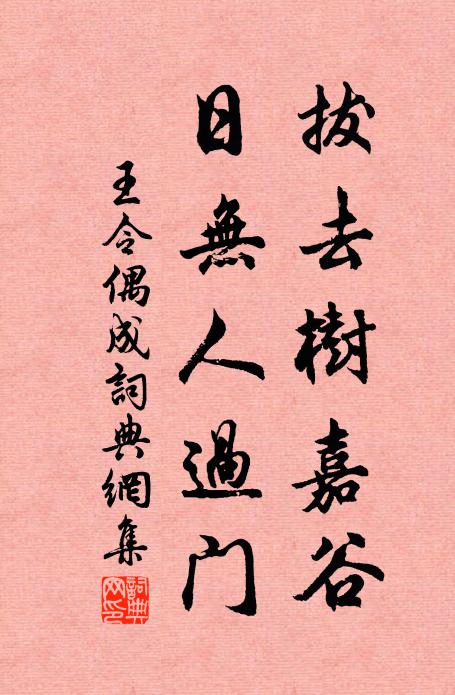 拔去樹嘉谷
日無人過门
王令偶成詞典網集
詞典网印